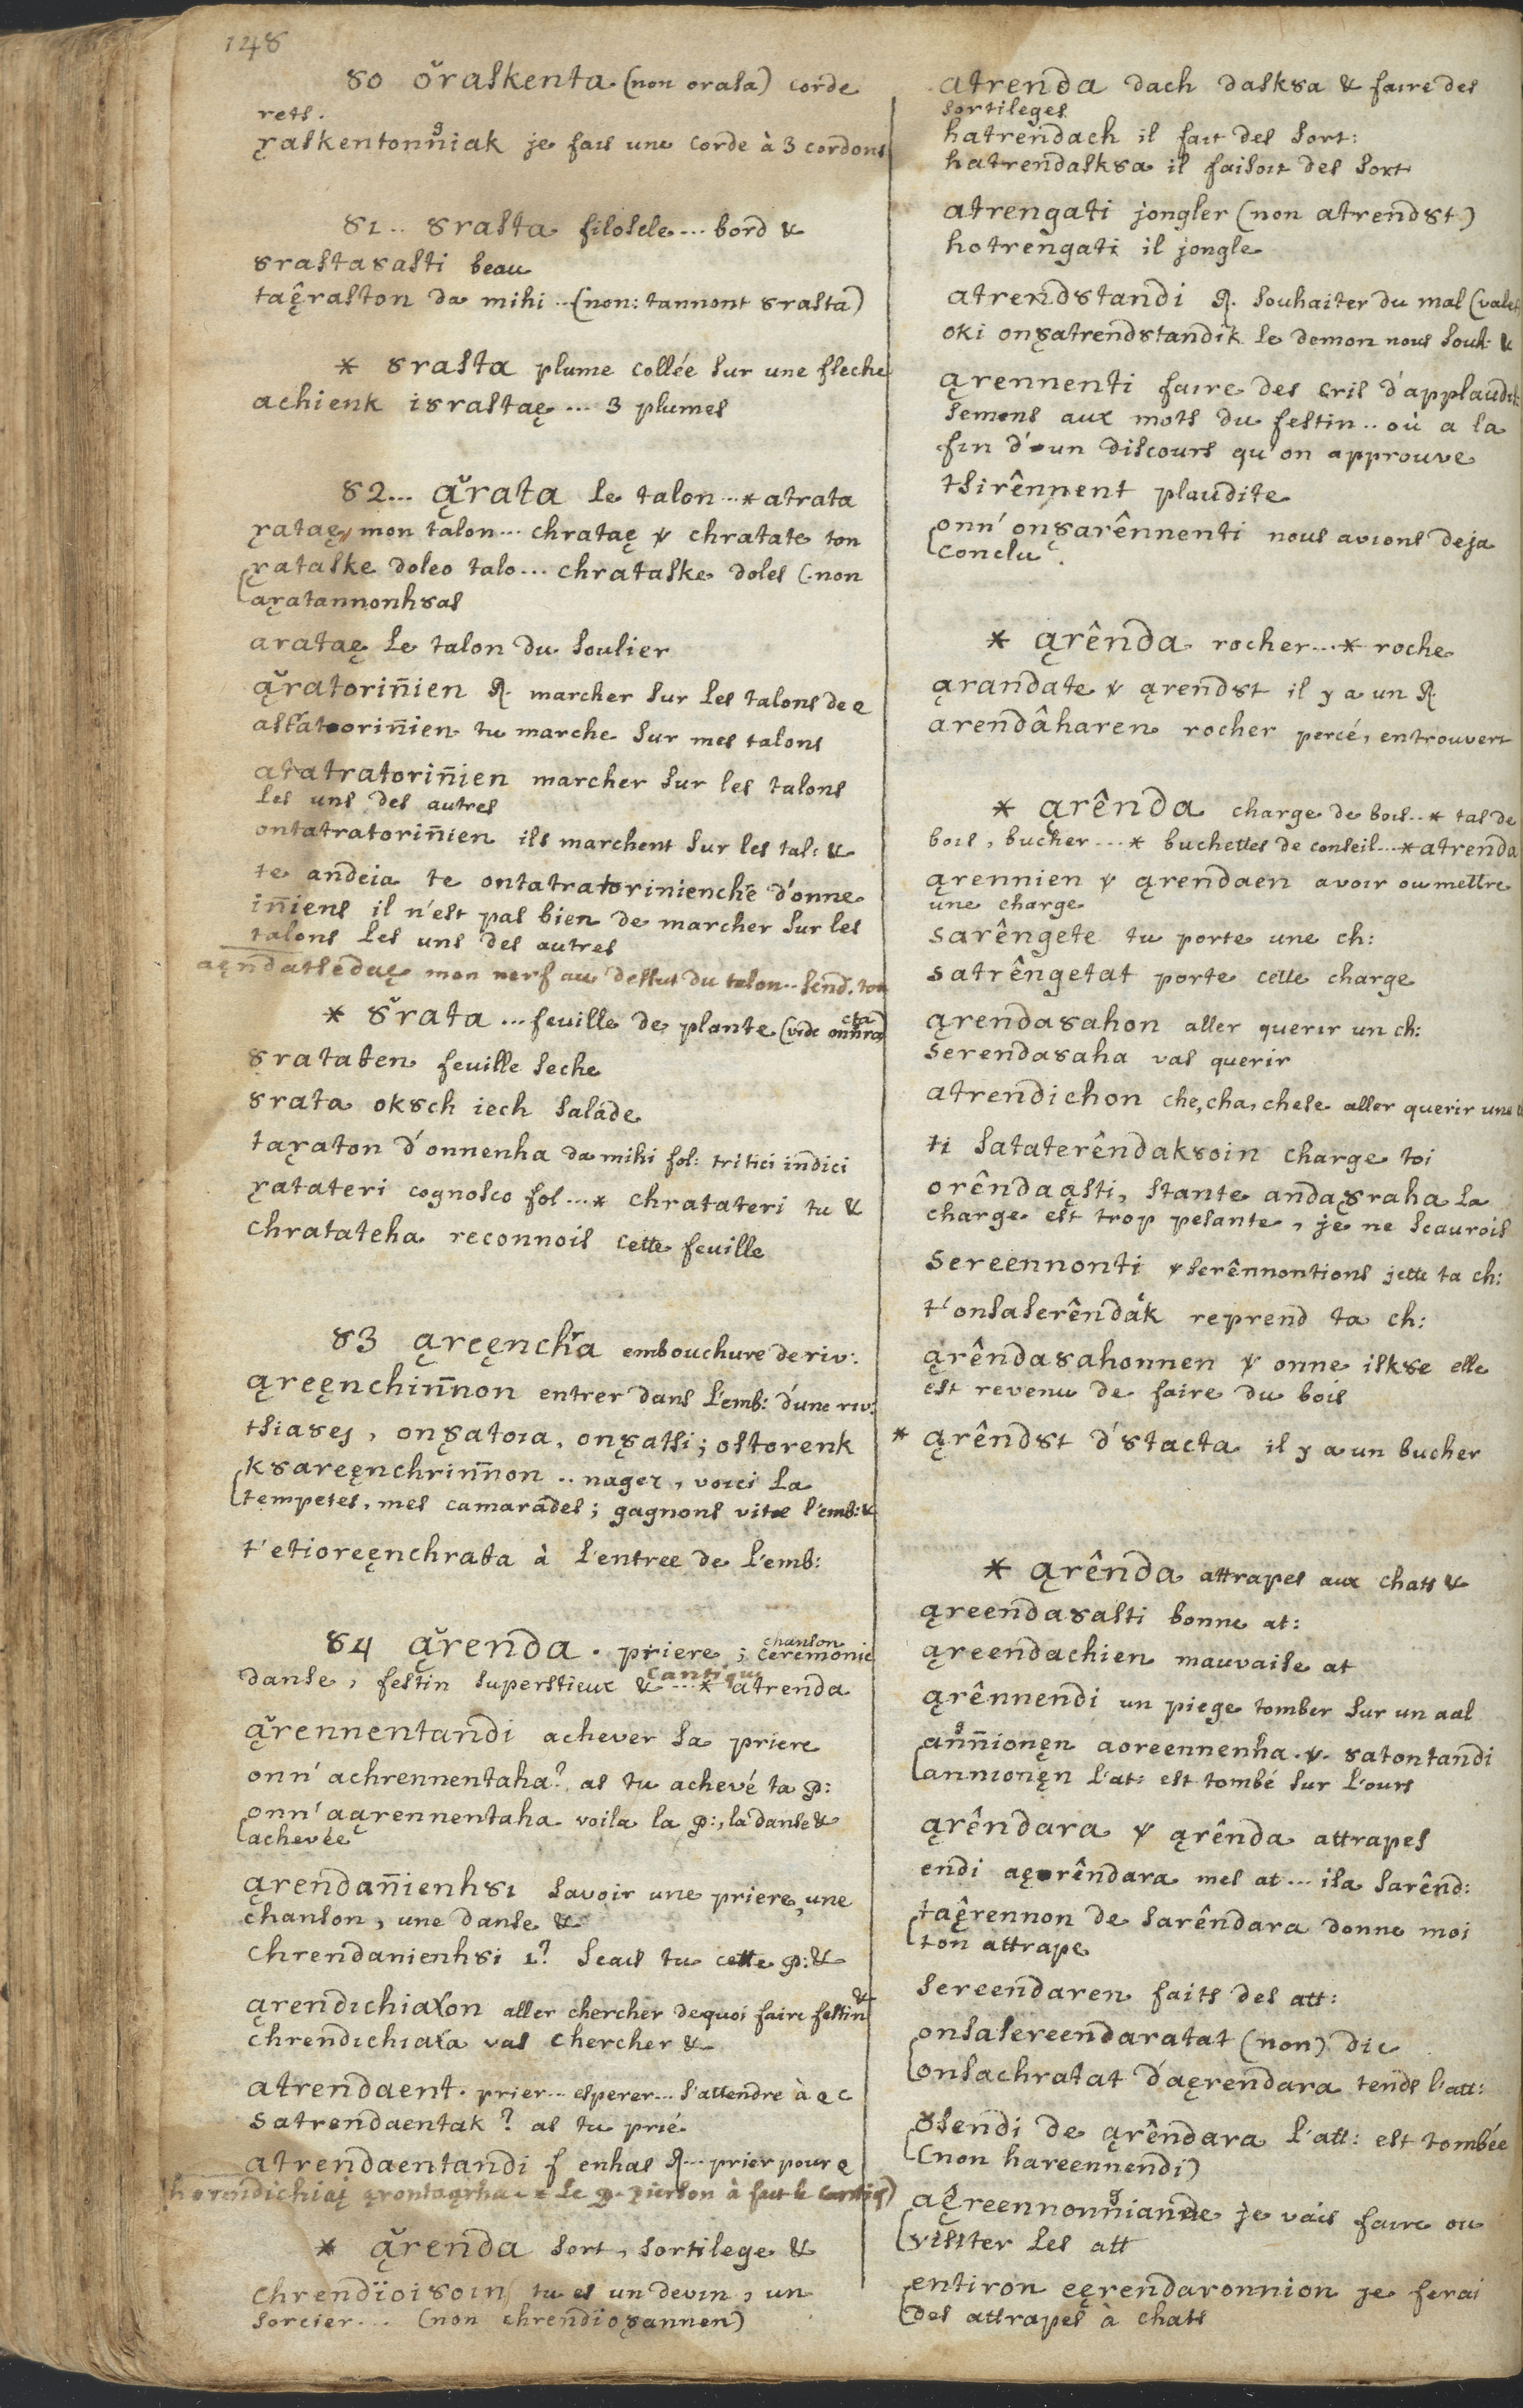 148
80 ořaskenta (non orasa) corde
rets.
ɣaskentonn̄iak je fais une corde à 3 cordons
81.. 8rasta filosele... bord &
8rasta8asti beau
taę̂raston da mihi ..(non: tannont 8rasta)
* 8rasta plume collée sur une fleche
achienk i8rastaę ... 3 plumes
82... ąřata le talon...* atrata
ɣataę, mon talon... chrataę ɣ chratate ton
ɣataske doleo talo... chrataske doles (non
aɣatannonh8as
arataę le talon du soulier
ąřatorin̄ien R. marcher sur les talons de e
asratorin̄ien tu marche sur mes talons
atatratorin̄ien marcher sur les talons
les uns des autres
ontatratorin̄ien ils marchent sur les tal: &
te andeia te ontatratorinienchē d'onne
in̄iens il n'est pas bien de marcher sur les
talons les uns des autres
mon nerf au dessus du talon.. send. ton
* 8̌rata ... feuille de plante (vide
8rataten feuille seche
8rata ok8ch iech salade
taɣaton d'onnenha da mihi fol: tritici indici
ɣatateri cognosco fol...* chratateri tu &
chratateha reconnois cette feuille
83 ąreęnchra embouchure de riv:
ąreęnchin̄non entrer dans l'emb: d'une riv:
tsia8es, on8̨atoia, on8̨atsi; ostorenk
k8areęnchrin̄non .. nager, voici la
tempetes, mes camarades; gagnons vite l'emb: &
t'etioreęnchrata à l'entree de l'emb:
84 ąřenda . priere ; chanson ceremonie
danse, festin superstieux & cantique ...* atrenda
ąřennentandi achever sa priere
onn' achrennentaha? as tu achevé ta p:
onn' aąrennentaha voila la p:, la danse &
achevée
ąrendan̄ienh8i savoir une priere, une
chanson, une danse &
chrendanienh8i 1? scais tu cette p: &
ąrendichiaɣon aller chercher dequoi faire festin &
chrendichiaɣa vas chercher &
atrendaent. prier... esperer... s'attendre à e c
satrendaentak? as tu prié
atrendaentandi f enhas R... prier pour e
* ąřenda sort, sortilege &
chrendïoi8oin tu es un devin, un
sorcier... (non chrendio8̨annen)
atrenda dach dask8a & faire des
sortileges
hatrendach il fait des sort:
hatrendask8a il faisoit des sort
atrengati jongler (non atrend8t)
hotrengati il jongle
atrend8tandi R. souhaiter du mal (valet
oki on8̨atrend8tandik le demon nous souh &
ąrennenti faire des cris d'applaudis
semens aux mots du festin.. où a la
fin d'un discours qu'on approuve
tsirênnent plaudite
onn' on8̨arênnenti nous avions deja
conclu
* ąrênda rocher...* roche
ąrandate ɣ ąrend8t il y a un R
arendâharen rocher percé, entrouvert
* ąrênda charge de bois..* tas de
bois, bucher ...* buchettes de conseil...* atrenda
ąrennien ɣ ąrendaen avoir ou mettre
une charge
sarêngete tu porte une ch:
satrêngetat porte cette charge
ąrenda8ahon aller querir un ch:
serenda8aha vas querir
atrendichon che, cha, chese aller querir une &
ti sataterêndak8oin charge toi
orêndaąsti, stante anda8̨raha la
charge est trop pesante, je ne scaurois
sereennonti ɣ serênnontions jette ta ch:
t'onsaserêndäk reprend ta ch:
ąrênda8ahonnen ɣ onne isk8e elle
est revenu de faire du bois
* ąrênd8t d'8tacta il y a un bucher
* ąrênda attrapes aux chats &
ąreenda8asti bonne at:
ąreendachien mauvaise at
ąrênnendi un piege tomber sur un aal
ann̄ionęn aoreennenha .ɣ. satontandi
annionęn l'at: est tombé sur l'ours
ąrêndara ɣ ąrênda attrapes
endi aęrêndara mes at... isa sarênd:
taę̂rennon de sarêndara donne moi
ton attrape
sereendaren faits des att:
onsasereendaratat (non) dic
onsachratat d'aęrendara tends l'att:
8̌sendi de ąrêndara l'att: est tombée
(non hareennendi)
aę̂reennonn̄iande je vais faire ou
visiter les att
entiron eęrendaronnion je ferai
des attrapes à chats